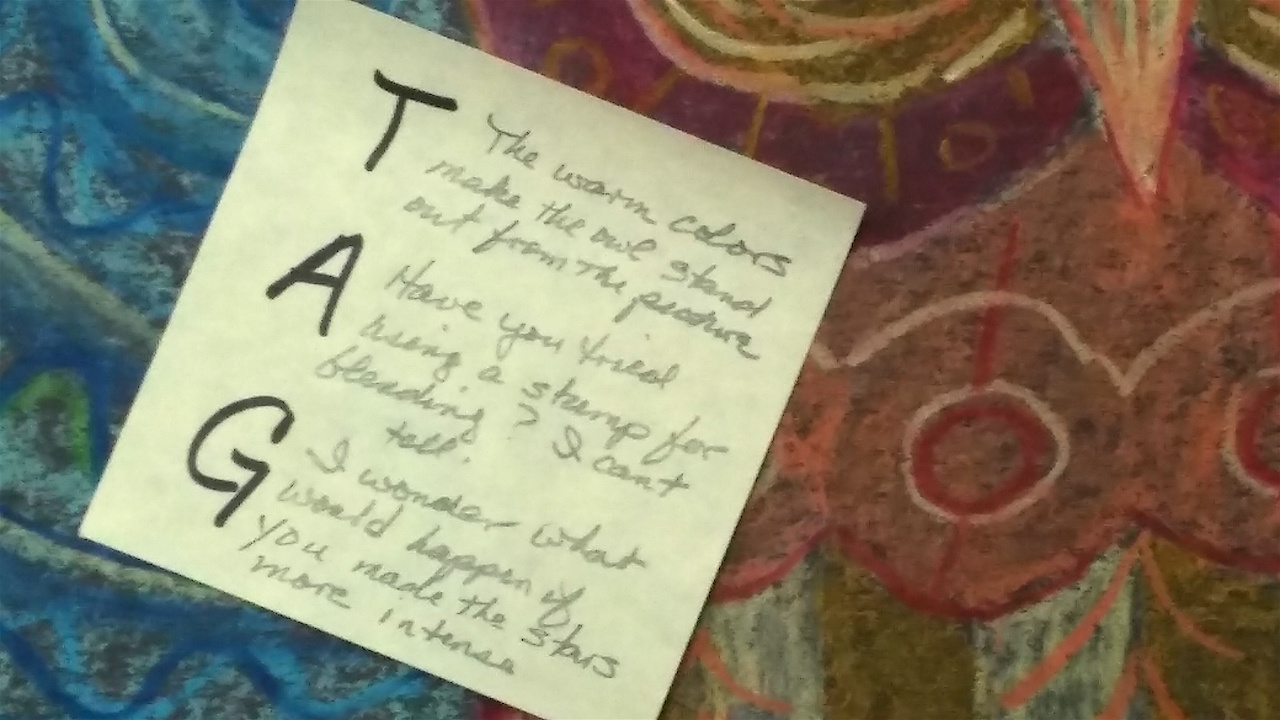 T The warm colors
make the owl stand
out from the picture
A Have you tried
using a stump for
blending? I can't
tell.
G I wonder what
would happen if
you made the stars
more intense